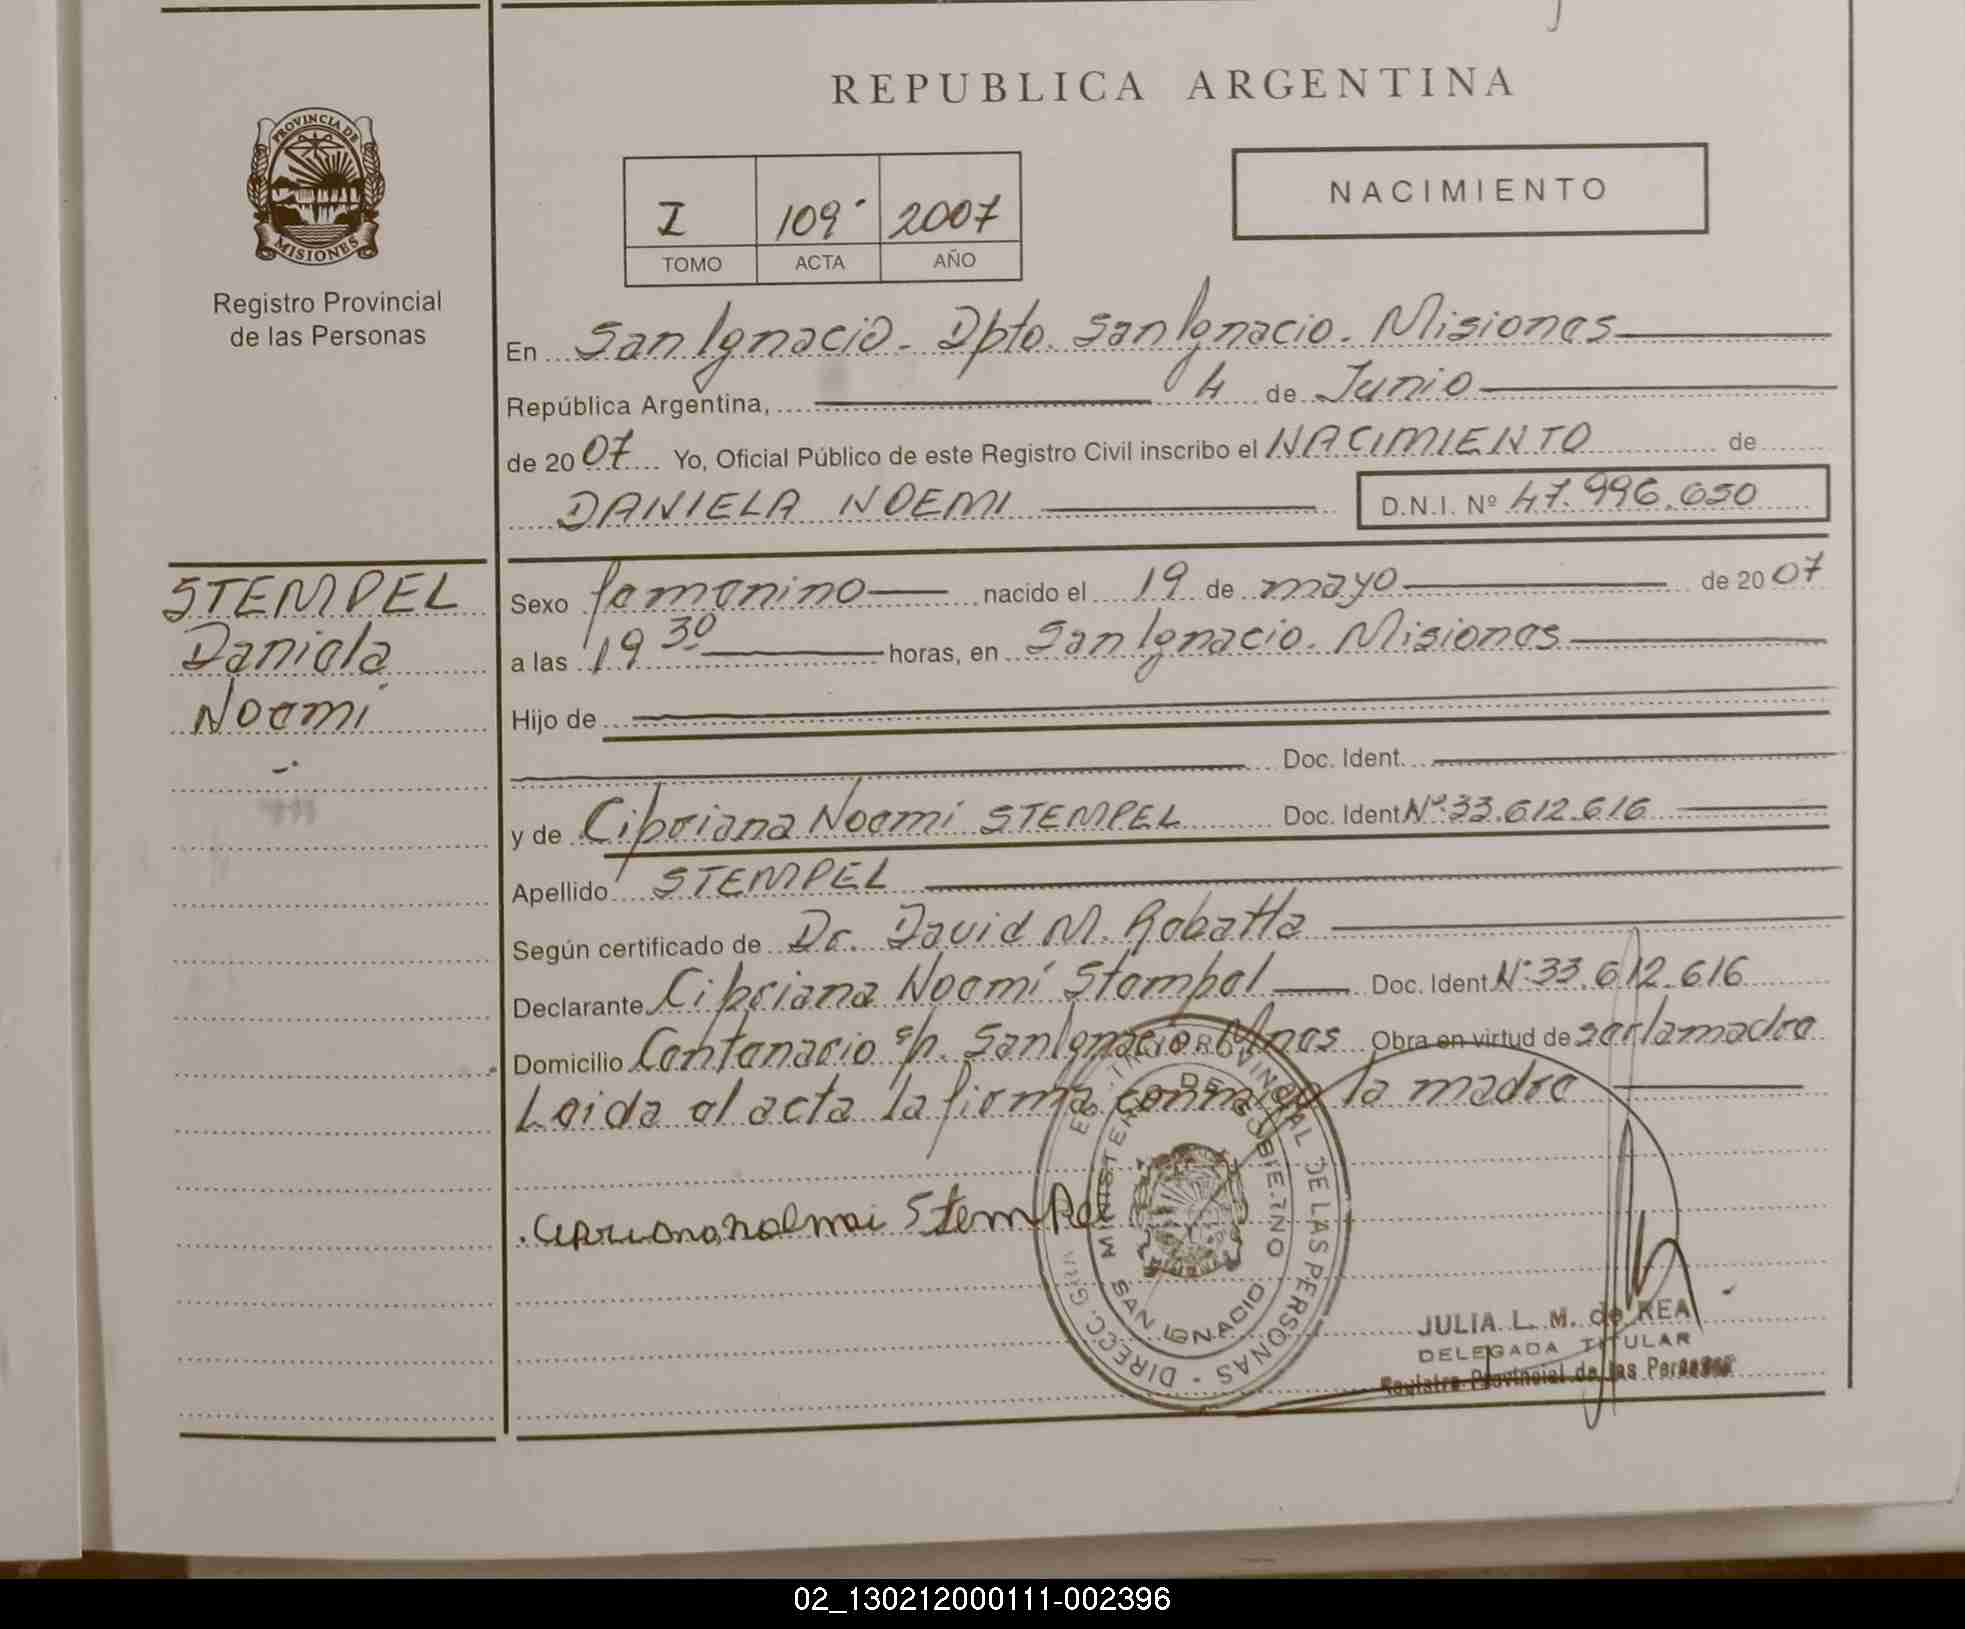 REPUBLICA ARGENTINA
PROVINCIA DE
MISIONES
Registro Provincial
de las Personas
I 109 2007
TOMO ACTA AÑO
NACIMIENTO
En San Ignacio. Dpto. San Ignacio. Misiones
República Argentina, 4 de Junio
de 2007 Yo, Oficial Público de este Registro Civil inscribo el NACIMIENTO de
DANIELA NOEMI D.N.I. Nº 47.996.650
STEMPEL
Daniela
Noemi
Sexo femenino nacido el 19 de mayo de 2007
a las 19 30 horas, en San Ignacio. Misiones
Hijo de
Doc. Ident.
y de Cipriana Noemí STEMPEL Doc. Ident Nº:33.612.616
Apellido STEMPEL
Según certificado de Dr. David M. Robatta
Declarante Cipriana Noemí Stempel Doc. Ident Nº:33.612.616
Domicilio Centenario s/n. San Ignacio Mnes Obra en virtud de ser la madre
Leida el acta la firma conmigo la madre
Stempel
DIRECC. GRAL. PROVINCIAL DE LAS PERSONAS
MINISTERIO DE GOBIERNO
SAN IGNACIO
JULIA L. M. de REA
DELEGADA TITULAR
Registro Provincial de las Personas
02_130212000111-002396